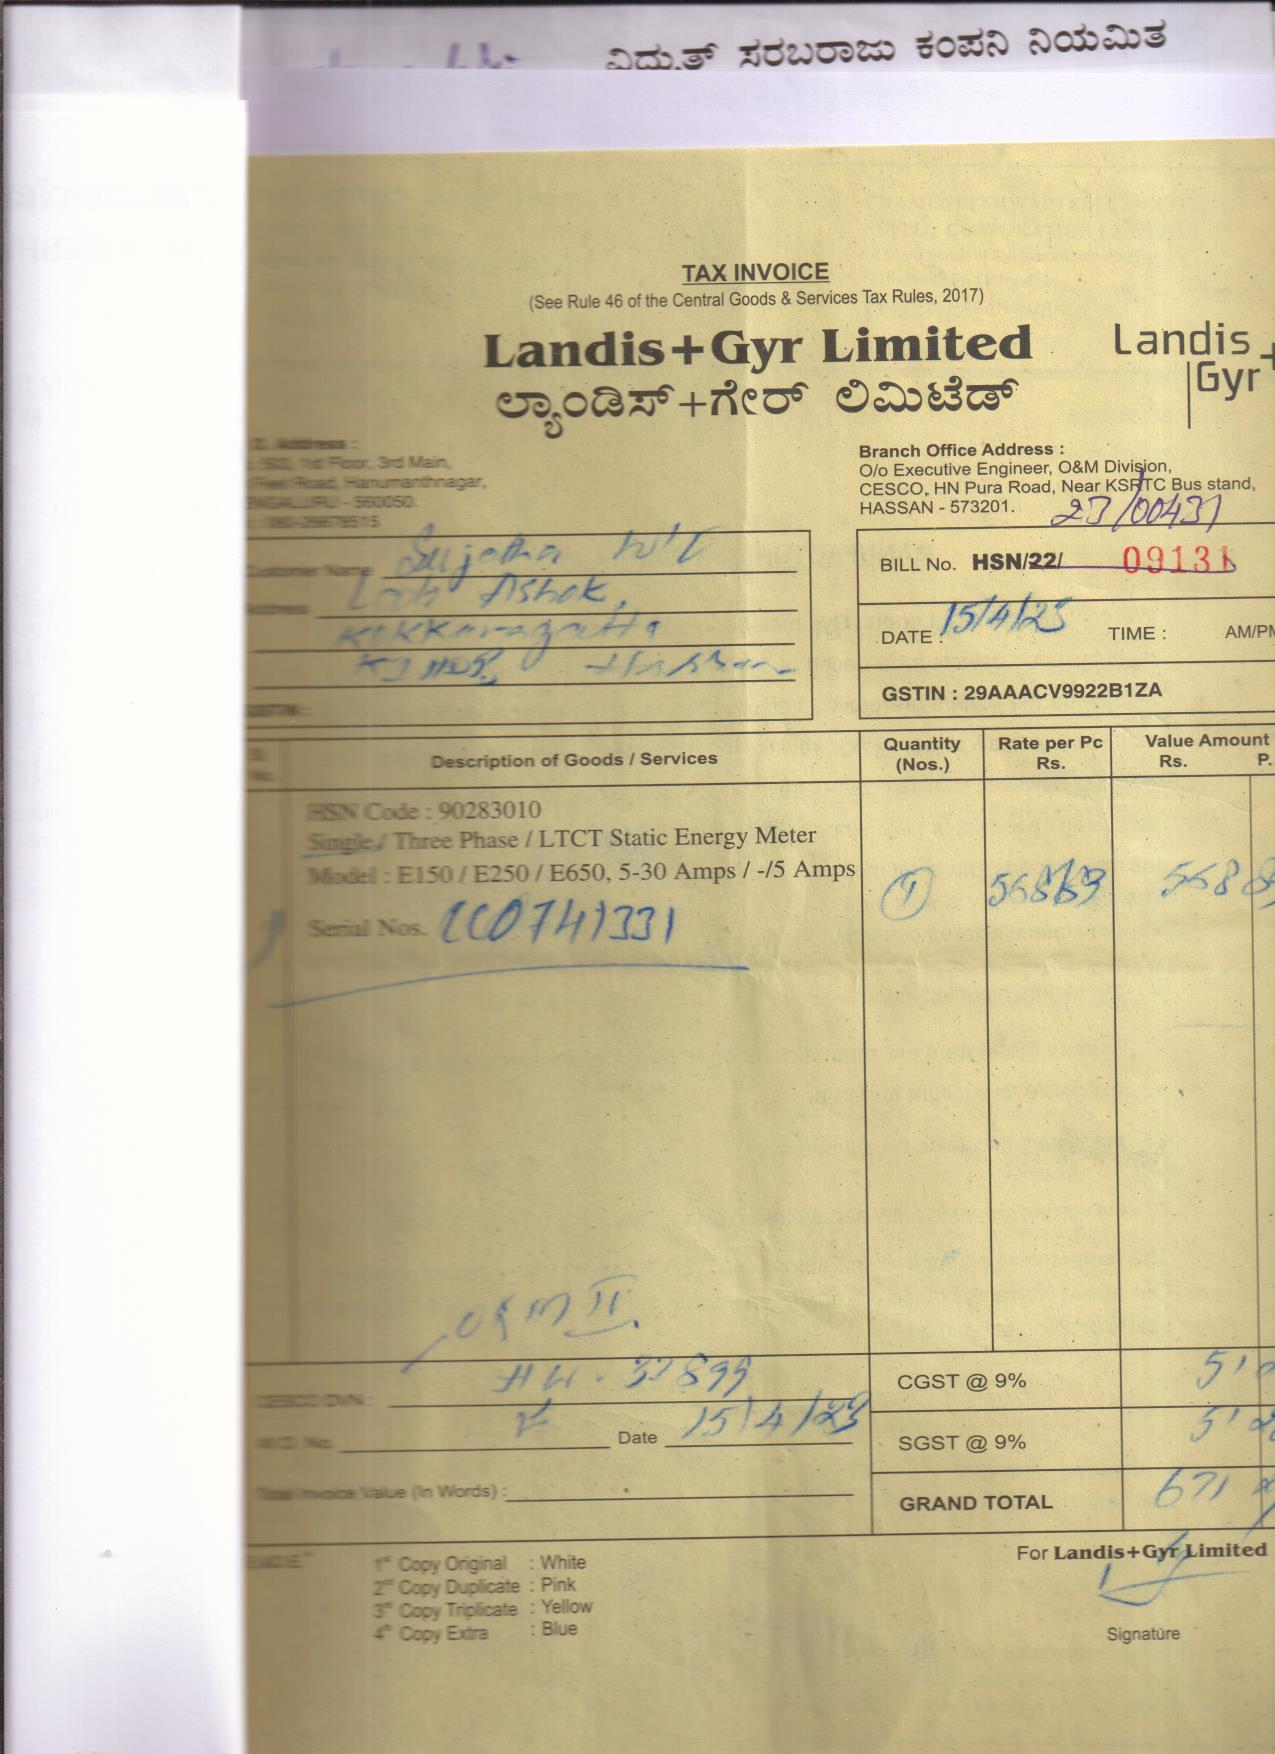 ವಿದ್ಯುತ್ ಸರಬರಾಜು ಕಂಪನಿ ನಿಯಮಿತ
TAX INVOICE
(See Rule 46 of the Central Goods & Services Tax Rules, 2017)
Landis+Gyr Limited
Landis+
Gyr
ಲ್ಯಾಂಡಿಸ್+ಗೇರ್ ಲಿಮಿಟೆಡ್
Address :
1st Floor, 3rd Main,
Road, Hanumanthnagar,
- 560050.
Branch Office Address :
O/o Executive Engineer, O&M Division,
CESCO, HN Pura Road, Near KSRTC Bus stand,
HASSAN - 573201.
23/00431
Customer Name Sujatha
Address Ashok
Hassan
GSTIN :
BILL No. HSN/22/ 09131
DATE : 15/4/23 TIME : AM/PM
GSTIN : 29AAACV9922B1ZA
Description of Goods / Services
Quantity (Nos.)
Rate per Pc Rs.
Value Amount Rs. P.
HSN Code : 90283010
Single / Three Phase / LTCT Static Energy Meter
Model : E150 / E250 / E650, 5-30 Amps / -/5 Amps
1
Serial Nos. 0741331
O&M II
CESCO DVN :
Date 15/4/23
Total Invoice Value (In Words) :
CGST @ 9%
SGST @ 9%
GRAND TOTAL 671
1st Copy Original : White
2nd Copy Duplicate : Pink
3rd Copy Triplicate : Yellow
4th Copy Extra : Blue
For Landis+Gyr Limited
Signature